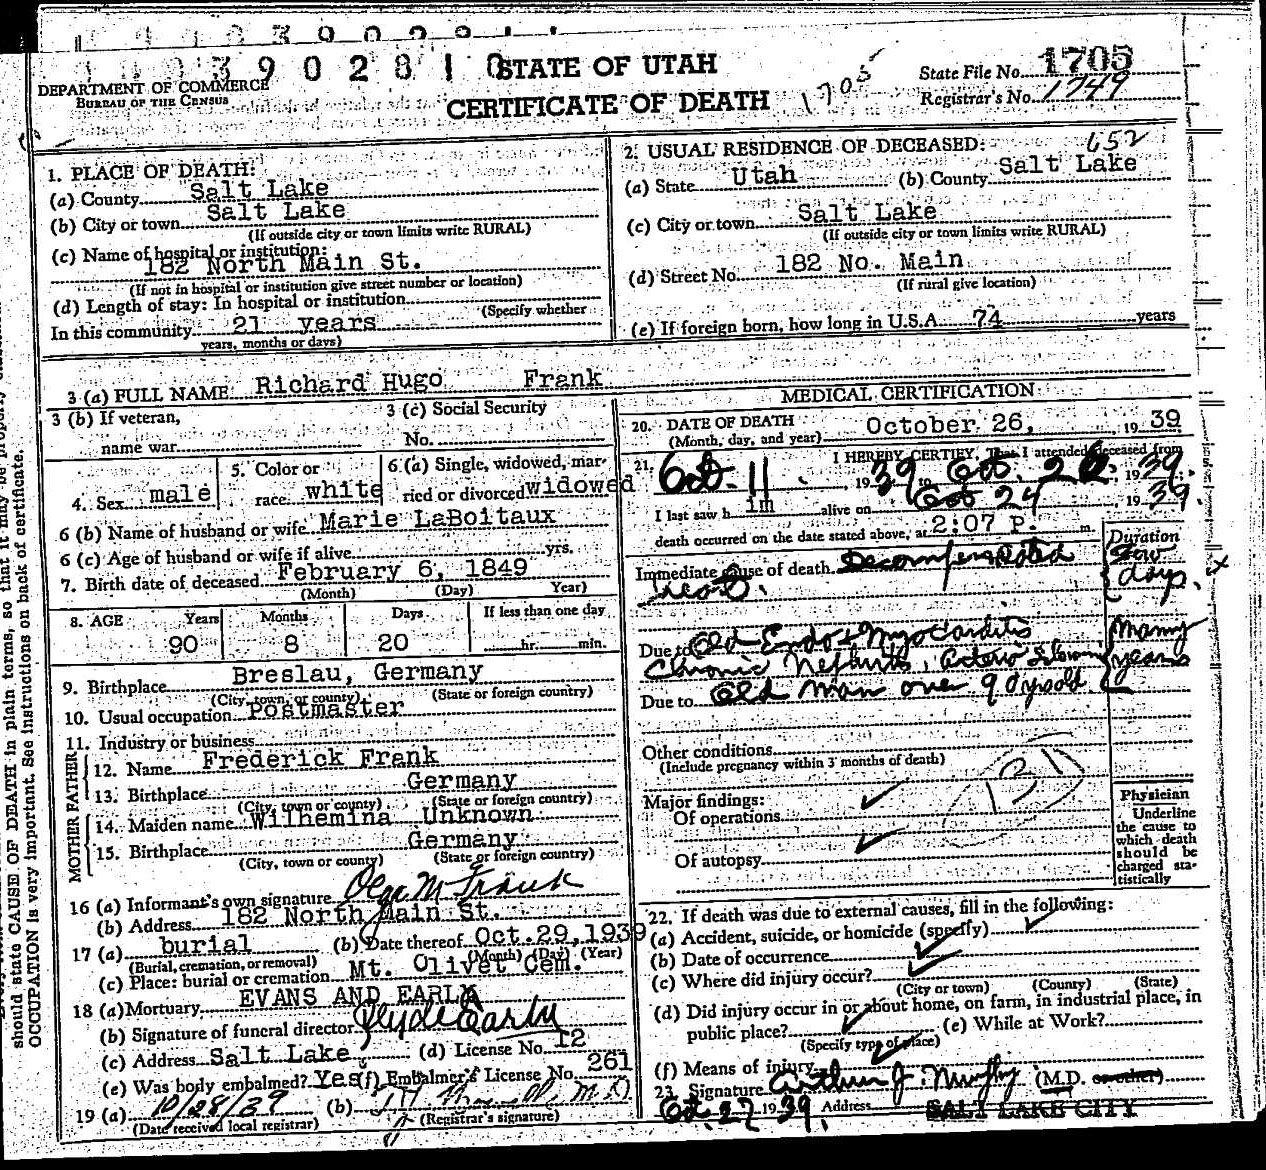 390281
STATE OF UTAH
CERTIFICATE OF DEATH
DEPARTMENT OF COMMERCE
BUREAU OF THE CENSUS
1705
State File No. 1705
Registrar's No. 1749
1. PLACE OF DEATH:
(a) County Salt Lake
(b) City or town Salt Lake
(If outside city or town limits write RURAL)
(c) Name of hospital or institution:
182 North Main St.
(If not in hospital or institution give street number or location)
(d) Length of stay: In hospital or institution
(Specify whether
In this community 21 years
years, months or days)
2. USUAL RESIDENCE OF DECEASED: 652
(a) State Utah (b) County Salt Lake
(c) City or town Salt Lake
(If outside city or town limits write RURAL)
(d) Street No. 182 No. Main
(If rural give location)
(e) If foreign born, how long in U.S.A. 74 years
3 (a) FULL NAME Richard Hugo Frank
3 (b) If veteran,
name war
3 (c) Social Security
No.
4. Sex male
5. Color or
race white
6 (a) Single, widowed, mar-
ried or divorced widowed
6 (b) Name of husband or wife Marie LaBoitaux
6 (c) Age of husband or wife if alive yrs.
7. Birth date of deceased February 6, 1849
(Month) (Day) Year)
8. AGE Years Months Days If less than one day
90 8 20 hr. min.
9. Birthplace Breslau, Germany
(City, town, or county) (State or foreign country)
10. Usual occupation Postmaster
11. Industry or business
FATHER
12. Name Frederick Frank
13. Birthplace Germany
(City, town or county) (State or foreign country)
MOTHER
14. Maiden name Wilhemina Unknown
15. Birthplace Germany
(City, town or county) (State or foreign country)
16 (a) Informant's own signature Olga M Frank
(b) Address 182 North Main St.
17 (a) burial (b) Date thereof Oct.29,1939
(Burial, cremation, or removal) (Month) (Day) (Year)
(c) Place: burial or cremation Mt. Olivet Cem.
18 (a) Mortuary EVANS AND EARLY
(b) Signature of funeral director Clyde Early
(c) Address Salt Lake (d) License No. 12
(e) Was body embalmed? Yes (f) Embalmer's License No. 261
19 (a) 10/28/39 (b) M.D.
(Date received local registrar) (Registrar's signature)
MEDICAL CERTIFICATION
20. DATE OF DEATH
(Month, day, and year) October 26, 1939
21. I HEREBY CERTIFY, That I attended deceased from
Oct. 11, 1939 to Oct. 26, 1939.
I last saw h im alive on Oct 24 1939.
death occurred on the date stated above, at 2:07 P. m.
Duration
Immediate cause of death Decompensated
heart.
Few
days.
Due to Old Endo & Myocarditis
Chronic Nephritis, Arterio Sclerosis
Many
years
Due to Old man over 90 yrs old
Other conditions
(Include pregnancy within 3 months of death)
131
Major findings:
Of operations
Of autopsy
Physician
Underline
the cause to
which death
should be
charged sta-
tistically
22. If death was due to external causes, fill in the following:
(a) Accident, suicide, or homicide (specify)
(b) Date of occurrence
(c) Where did injury occur?
(City or town) (County) (State)
(d) Did injury occur in or about home, on farm, in industrial place, in
public place? (e) While at Work?
(Specify type of place)
(f) Means of injury
23. Signature Arthur J. Murphy (M.D. or other)
Oct. 27 1939. Address SALT LAKE CITY
should state CAUSE OF DEATH in plain terms, so that it may be properly
OCCUPATION is very important. See instructions on back of certificate.